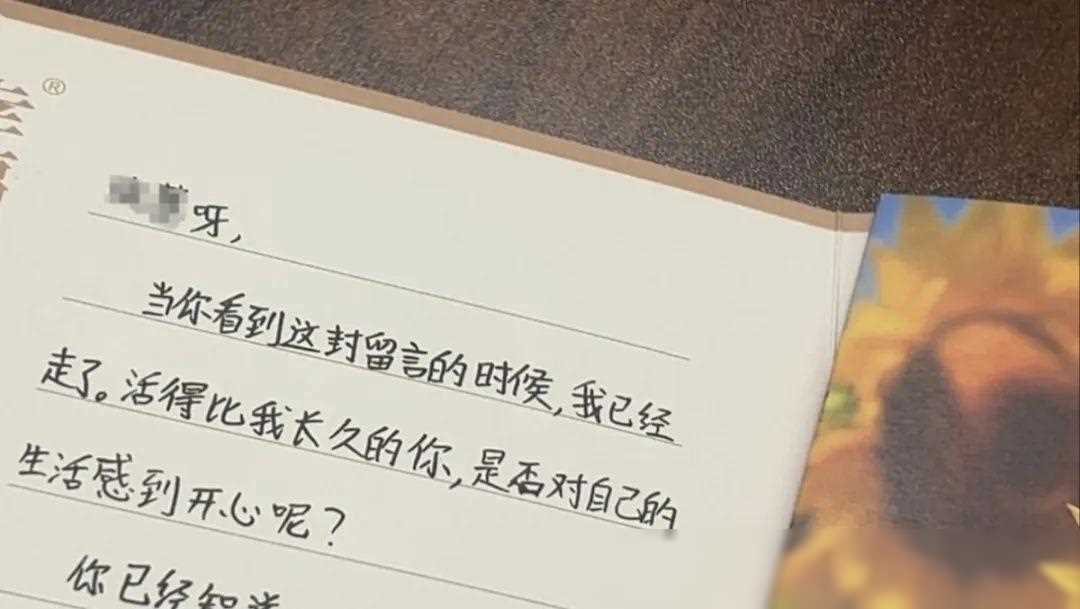 ®
呀，
当你看到这封留言的时候，我已经
走了。活得比我长久的你，是否对自己的
生活感到开心呢？
你已经知道